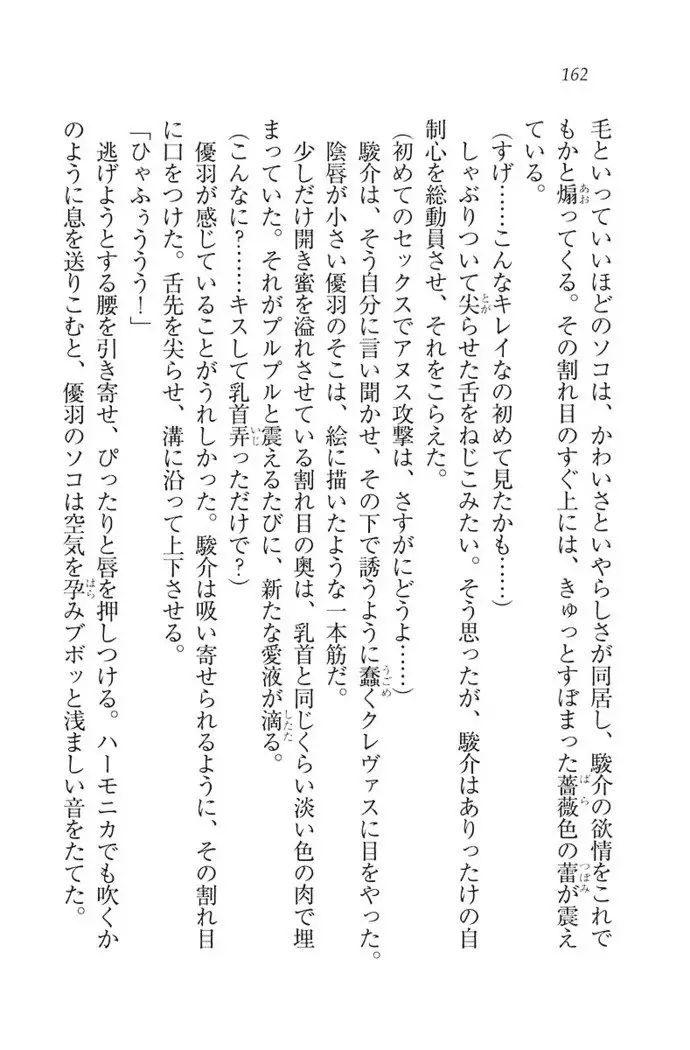 162
毛といっていいほどのソコは、かわいさといやらしさが同居し、駿介の欲情をこれで
もかと煽ってくる。その割れ目のすぐ上には、きゅっとすぼまった薔薇色の蕾が震え
ている。
(すげ……こんなキレイなの初めて見たかも……)
しゃぶりついて尖らせた舌をねじこみたい。そう思ったが、駿介はありったけの自
制心を総動員させ、それをこらえた。
(初めてのセックスでアヌス攻撃は、さすがにどうよ……)
駿介は、そう自分に言い聞かせ、その下で誘うように蠢くクレヴァスに目をやった。
陰唇が小さい優羽のそこは、絵に描いたような一本筋だ。
少しだけ開き蜜を溢れさせている割れ目の奥は、乳首と同じくらい淡い色の肉で埋
まっていた。それがプルプルと震えるたびに、新たな愛液が滴る。
(こんなに?……キスして乳首弄っただけで?)
優羽が感じていることがうれしかった。駿介は吸い寄せられるように、その割れ目
に口をつけた。舌先を尖らせ、溝に沿って上下させる。
「ひゃふぅううう!」
逃げようとする腰を引き寄せ、ぴったりと唇を押しつける。ハーモニカでも吹くか
のように息を送りこむと、優羽のソコは空気を孕みブボッと浅ましい音をたてた。